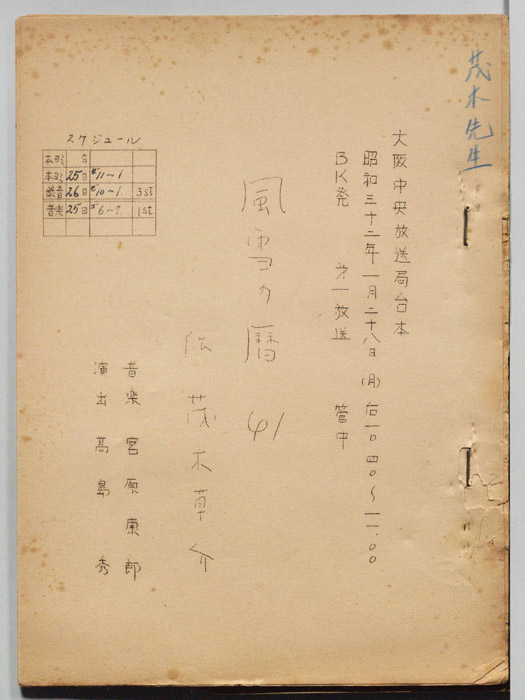 茂木先生
大阪中央放送局台本
昭和三十二年一月二十八日(月)后一〇.四〇〜一一.〇〇
BK発 才一放送 管中
風雪の暦
茂木草介
音楽 宮原康郎
演出 高島 秀
スケジュール
本ヨミ 日
本ヨミ 25日 11〜1
26日 10〜1. 3st
音楽 25日 6〜9. 1st